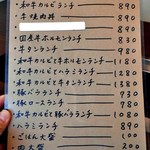 ・和牛カルビランチ 890
・牛焼肉丼 890
・国産牛ホルモンランチ 830
・牛タンランチ 980
・和牛カルビと牛ホルモンランチ 1180
・和牛カルビとハラミランチ 1280
・和牛カルビと牛タンランチ 1380
・豚バラランチ 730
・豚ロースランチ 780
・和牛カルビと豚バラランチ 1080
・ハラミランチ 890
・ごはん大盛 100
・肉大盛 200